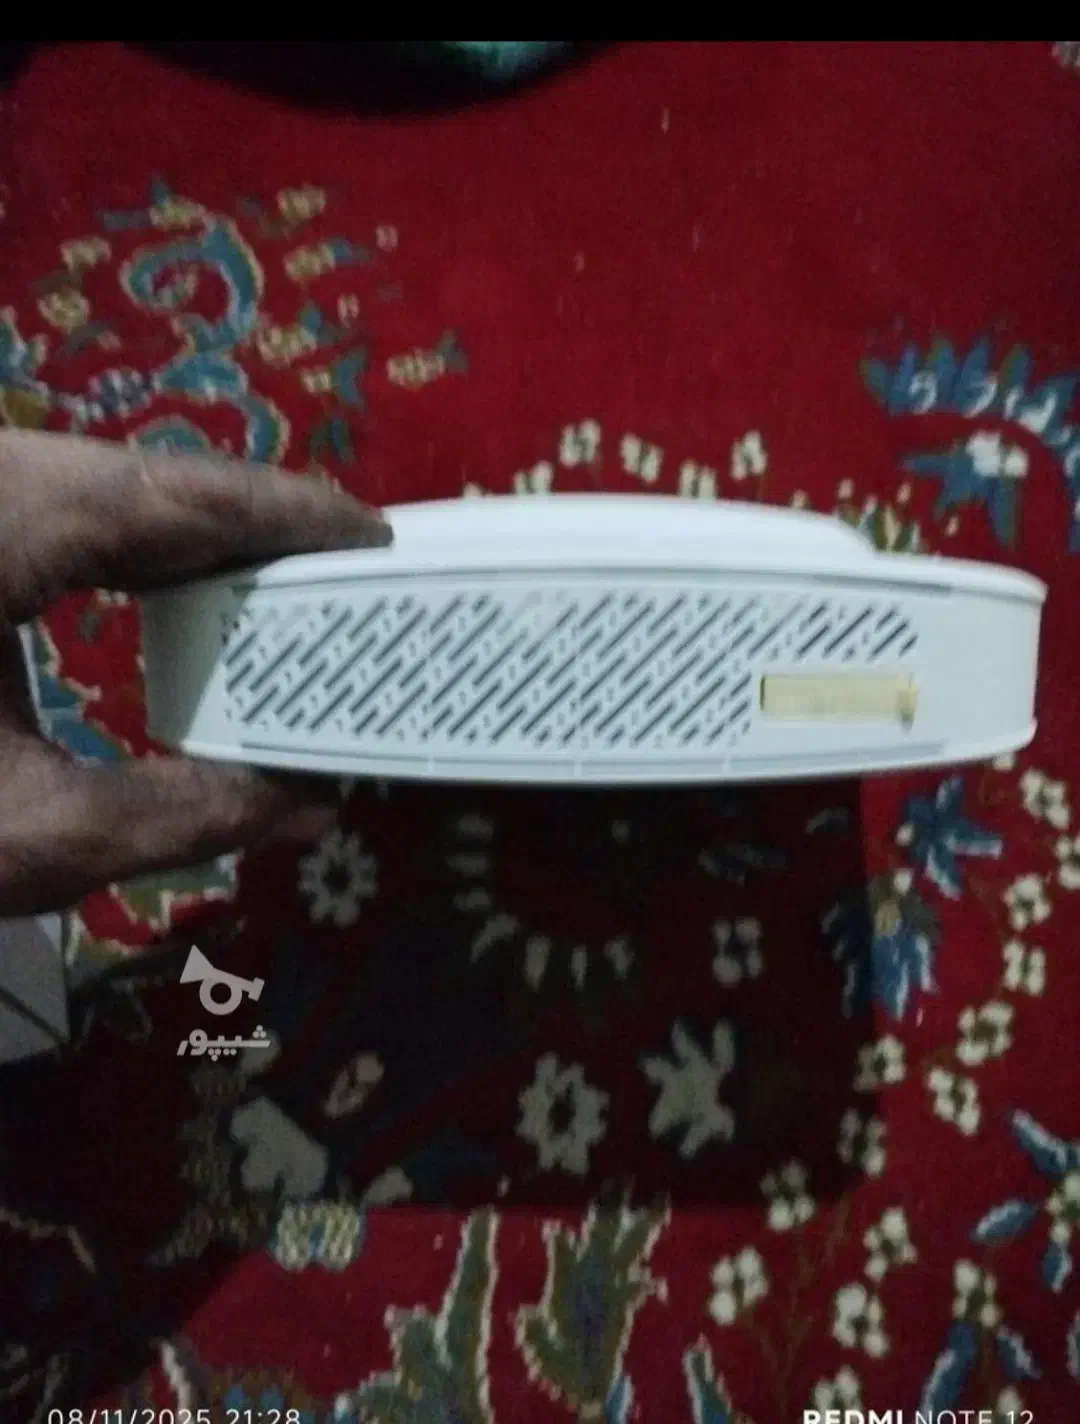 شیپور
08/11/2025 21:28
REDMI NOTE 12